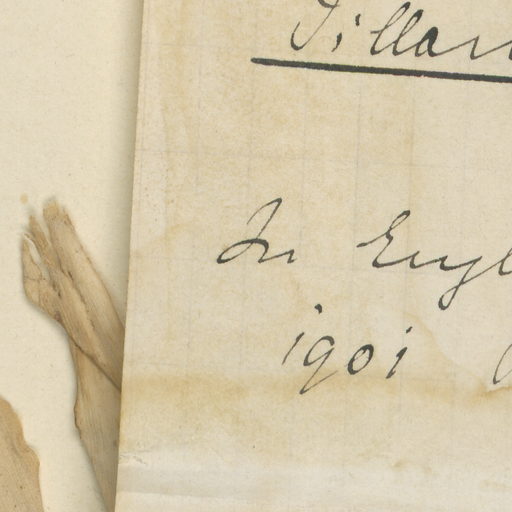 Tillan
In Engl
1901